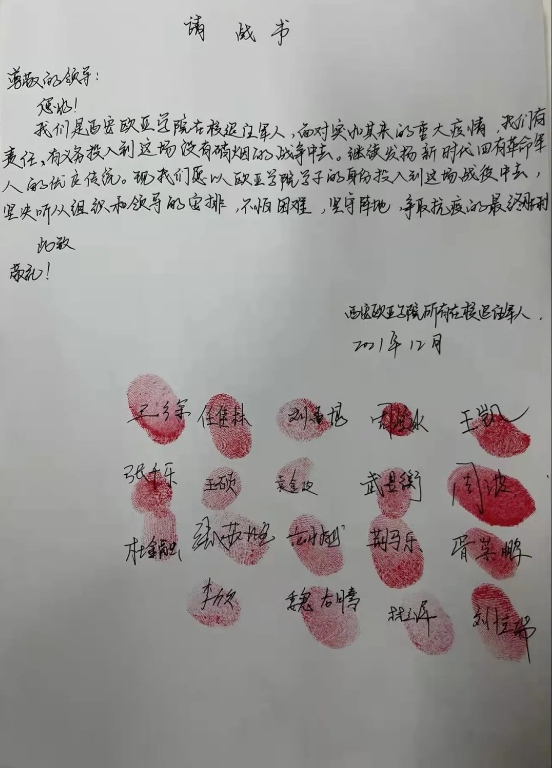 请战书
尊敬的领导：
您好！
我们是西安欧亚学院在校退伍军人，面对突如其来的重大疫情，我们有
责任，有义务投入到这场没有硝烟的战争中去。继续发扬新时代四有革命军
人的优良传统。现我们愿以欧亚学院学子的身份投入到这场战役中去，
坚决听从组织和领导的安排，不怕困难，坚守阵地，争取抗疫的最终胜利
此致
敬礼！
西安欧亚学院所有在校退伍军人
2021年12月
任佳林 王凯
张千乐 王硕 周波
胥荣鹏
李欣 魏右腾